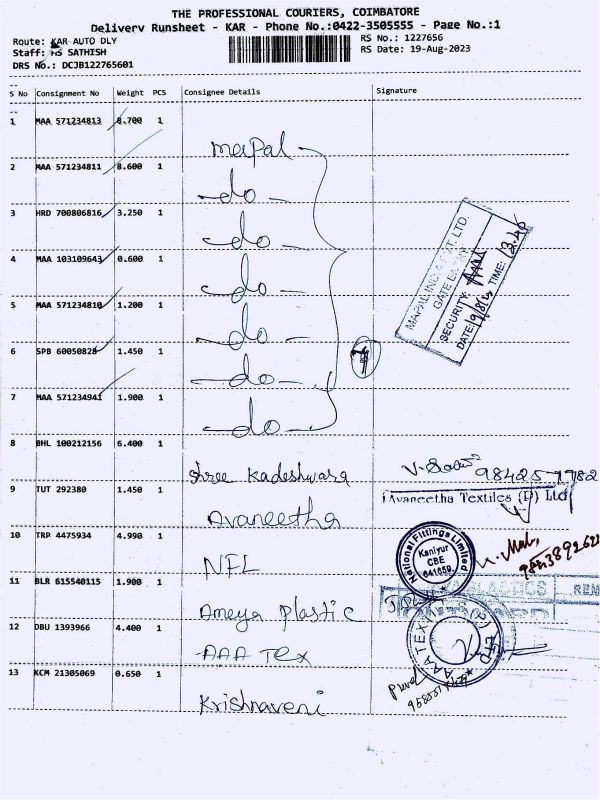 THE PROFESSIONAL COURIERS, COIMBATORE
Delivery Runsheet - KAR - Phone No.:0422-3505555 - Page No.:1
Route: KAR AUTO DLY
RS No.: 1227656
Staff: SATHISH
RS Date: 19-Aug-2023
DRS No.: DCJB122765601
S No Consignment No Weight PCS Consignee Details Signature
1 MAA 571234813 8.700 1 mapal
2 MAA 571234811 8.600 1 -do-
3 HRD 700806816 3.250 1 -do-
4 MAA 103109643 0.600 1 -do-
5 MAA 571234810 1.200 1 -do-
6 SPB 60050828 1.450 1 -do-
7 MAA 571234941 1.900 1 -do-
MAPAL INDIA PVT. LTD.
GATE ENTRY
SECURITY:
DATE: TIME:
7
8 BHL 100212156 6.400 1 Shree Kadeshwara
9 TUT 292380 1.450 1 Avaneetha
Avaneetha Textiles (P) Ltd
10 TRP 4475934 4.990 1 NFL
National Fittings Limited
Kaniyur
CBE
641659
11 BLR 615540115 1.900 1 Ameya Plastic
12 DBU 1393966 4.400 1 AAA Tex
AAA TEX (P) LTD
13 KCM 21305069 0.650 1 Krishnaveni